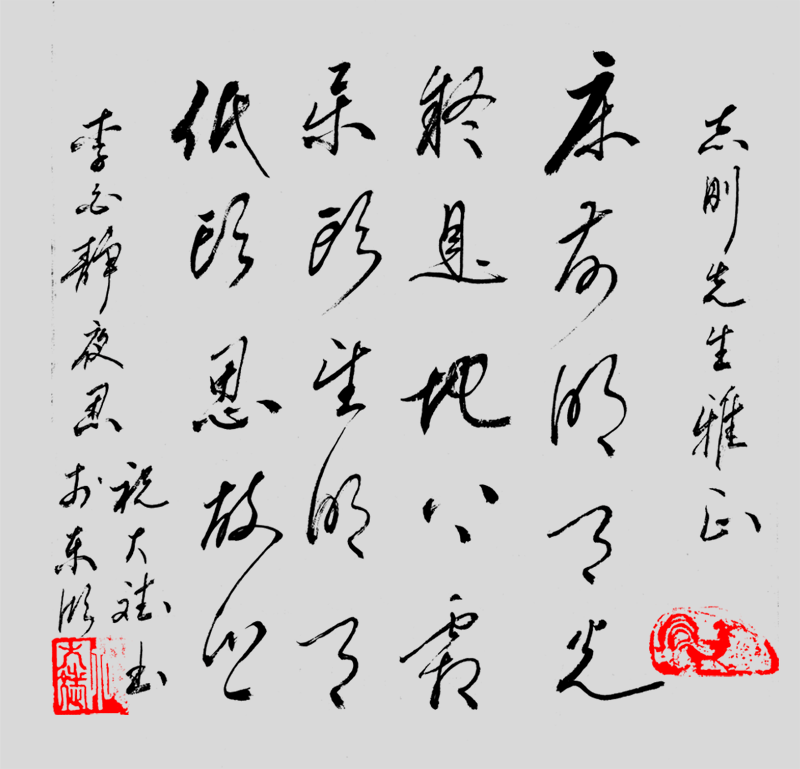 志刚先生雅正
床前明月光
疑是地上霜
举头望明月
低头思故乡
李白静夜思
祝大斌书
于东
大斌